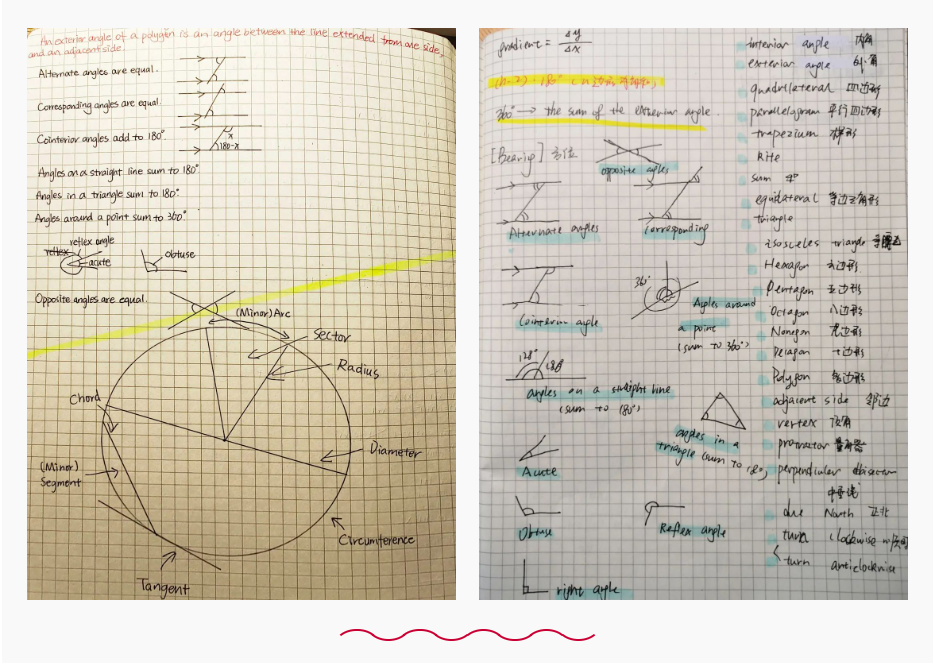 An exterior angle of a polygon is an angle between the line extended from one side,
and an adjacent side.
Alternate angles are equal.
Corresponding angles are equal
Cointerior angles add to 180°
x
180-x
Angles on a straight line sum to 180°
Angles in a triangle sum to 180°
Angles around a point sum to 360°
reflex angle
reflex
acute
obtuse
Opposite angles are equal.
(Minor) Arc
Sector
Radius
Chord
Diameter
(Minor)
Segment
Circumference
Tangent
gradient = Δy
Δx
(n-2)·180°
360° → the sum of the exterior angle.
[Bearig] 方位
opposite agles
Alternate angles
Corresponding
Cointerior angle
360°
Agles around
a point
(sum to 360°)
angles on a straight line
(sum to 180°)
angles in a
triangle (sum to 180°)
Acute
Obtuse
Reflex angle
right angle
interior angle 内角
exterior angle 外角
quadrilateral 四边形
parallelogram 平行四边形
trapezium 梯形
kite
sum
equilateral 等边三角形
triangle
isosceles triangle
Hexagon 六边形
Pentagon 五边形
Octagon 八边形
Nonegon 九边形
Decagon 十边形
Polygon 多边形
adjacent side 邻边
vertex 顶角
protractor 量角器
perpendicular bisector
中垂线
due North 正北
turn clockwise
turn anticlockwise